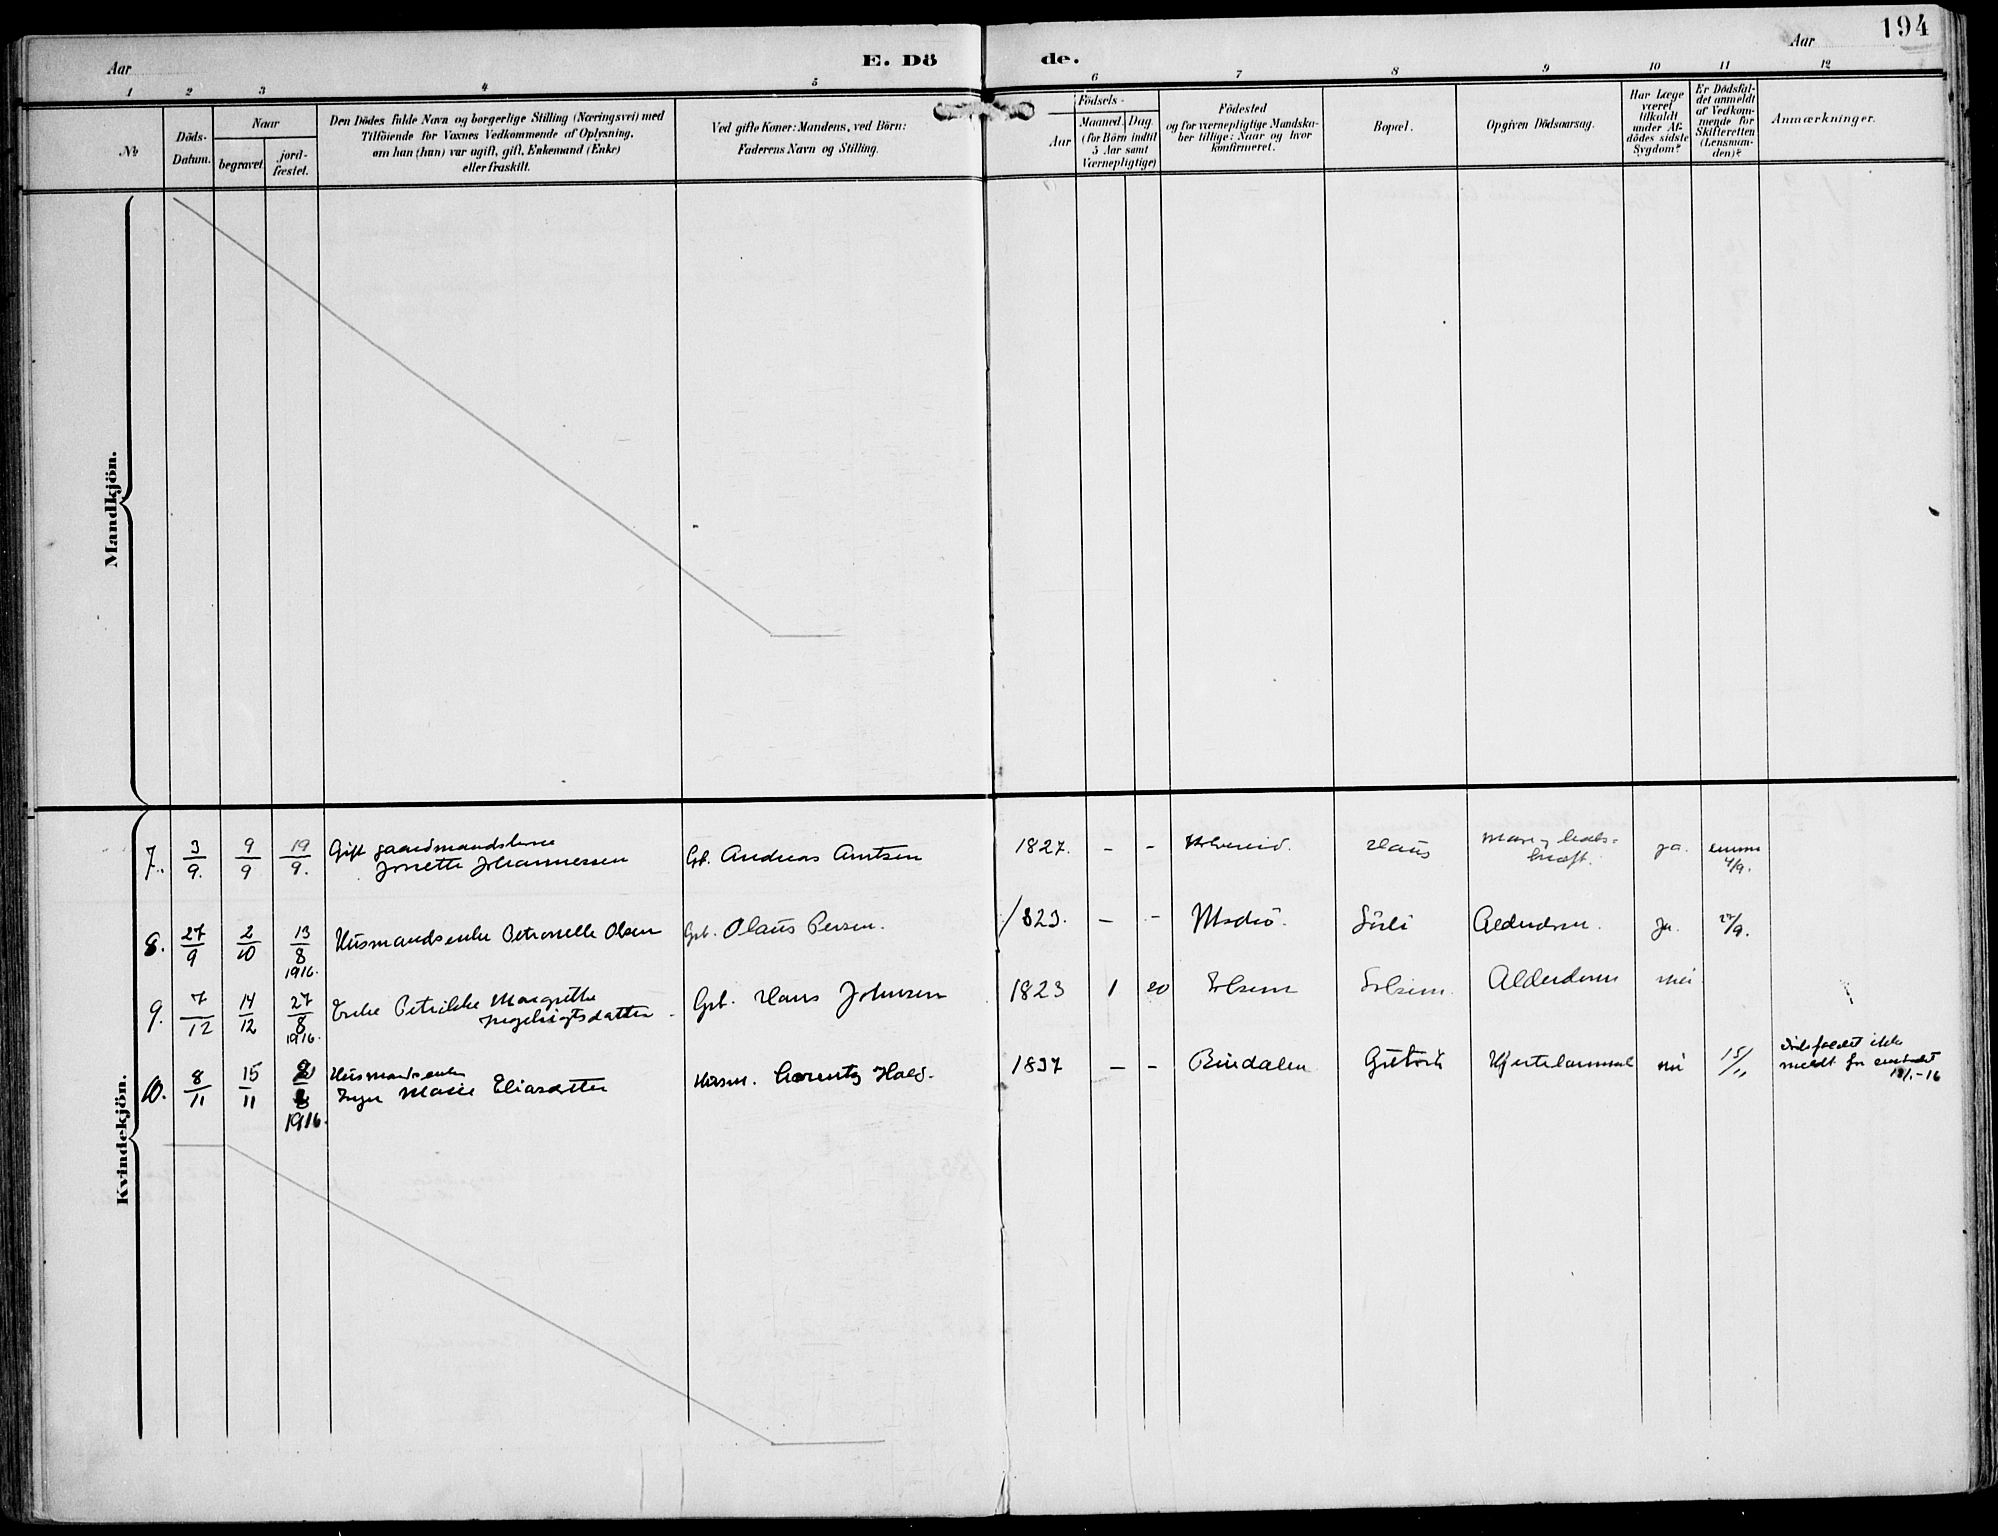 194
Aar
E. Dö
de.
Aar
1 2 3 4 5 6 7 8 9 10 11 12
No
Döds-
Datum.
Naar
begravet.
jord-
fæstet.
Den Dödes fulde Navn og borgerlige Stilling (Næringsvei) med
Tilföiende for Voxnes Vedkommende af Oplysning,
om han (hun) var ugift, gift, Enkemand (Enke)
eller fraskilt.
Ved gifte Koner: Mandens, ved Börn:
Faderens Navn og Stilling.
Födsels-
Aar
Maaned. Dag
(for Börn indtil
5 Aar samt
Værnepligtige)
Födested
og for værnepligtige Mandska-
ber tillige: Naar og hvor
konfirmeret.
Bopæl.
Opgiven Dödsaarsag.
Har Læge
været
tilkaldt
under Af-
dödes sidste
Sygdom?
Er Dödsfal-
det anmeldt
af Vedkom-
mende for
Skifteretten
(Lensman-
den)?
Anmærkninger.
Mandkjön.
Kvindekjön.
7. 3/9. 9/9 19/9. Gift gaardmandskone
Jonette Johannessen Gb. Andreas Arntsen 1827. - - ja. 4/9.
8. 27/9 2/10 13/8 1916. Husmandsenke Petronelle Olsen Gb. Olaus Persen. 1823. - - Alderdom. ja. 27/9.
9. 7/12 14/12 27/8 1916. Enke Petrikke Margrethe
Ingebrigtsdatter Gb. Hans Johnsen 1823 1 20 Solsem Solsem. Alderdom nei
10. 8/11 15/11 1916. Husmandsenke
Marie Eliasdatter Husm. Lorentz Hald. 1837 - - Bindalen Hjertelammelse nei 15/11 Dödsfaldet ikke
meldt for
18/1-16